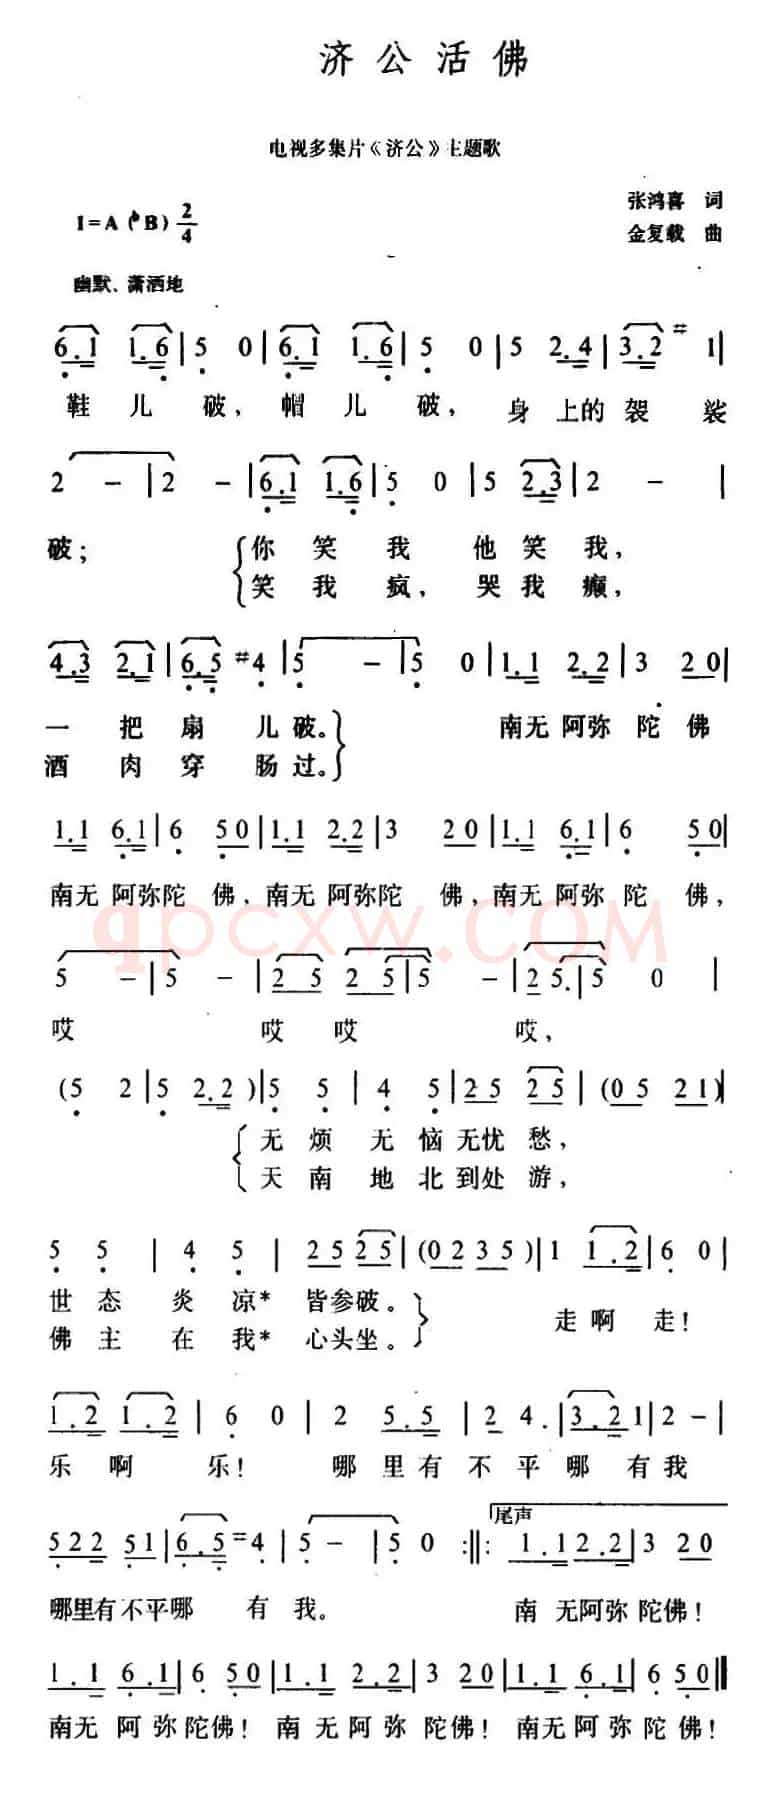 济公活佛
电视多集片《济公》主题歌
张鸿喜 词
1=A (♭B) 2/4
金复载 曲
幽默、潇洒地
6.1 1.6 | 5 0 | 6.1 1.6 | 5 0 | 5 2.4 | 3.2 #1 |
鞋 儿 破, 帽 儿 破, 身 上的 袈 裟
2 - | 2 - | 6.1 1.6 | 5 0 | 5 2.3 | 2 - |
破; 你 笑 我 他 笑 我,
笑 我 疯, 哭 我 癫,
4.3 2.1 | 6.5 #4 | 5 - | 5 0 | 1.1 2.2 | 3 20 |
一 把 扇 儿 破。 南无 阿弥 陀 佛
酒 肉 穿 肠 过。
1.1 6.1 | 6 50 | 1.1 2.2 | 3 20 | 1.1 6.1 | 6 50 |
南无 阿弥陀 佛, 南无 阿弥陀 佛, 南无 阿弥 陀 佛,
qpcxw.COM
5 - | 5 - | 25 25 | 5 - | 25. | 5 0 |
哎 哎 哎 哎,
(5 2 | 5 2.2) | 5 5 | 4 5 | 25 25 | (05 21) |
无 烦 无 恼 无忧 愁,
天 南 地 北 到处 游,
5 5 | 4 5 | 25 25 | (02 35) | 1 1.2 | 6 0 |
世 态 炎 凉* 皆参破。 走 啊 走!
佛 主 在 我* 心头坐。
1.2 1.2 | 6 0 | 2 5.5 | 2 4. | 3.2 1 | 2 - |
乐 啊 乐! 哪 里 有 不 平 哪 有 我
522 51 | 6.5 =4 | 5 - | 5 0 :||: 尾声 1.1 2.2 | 3 20 |
哪里有 不平哪 有 我。 南 无阿弥 陀佛!
1.1 6.1 | 6 50 | 1.1 2.2 | 3 20 | 1.1 6.1 | 6 50 ||
南无 阿 弥 陀佛! 南 无 阿 弥 陀佛! 南无 阿 弥 陀 佛!